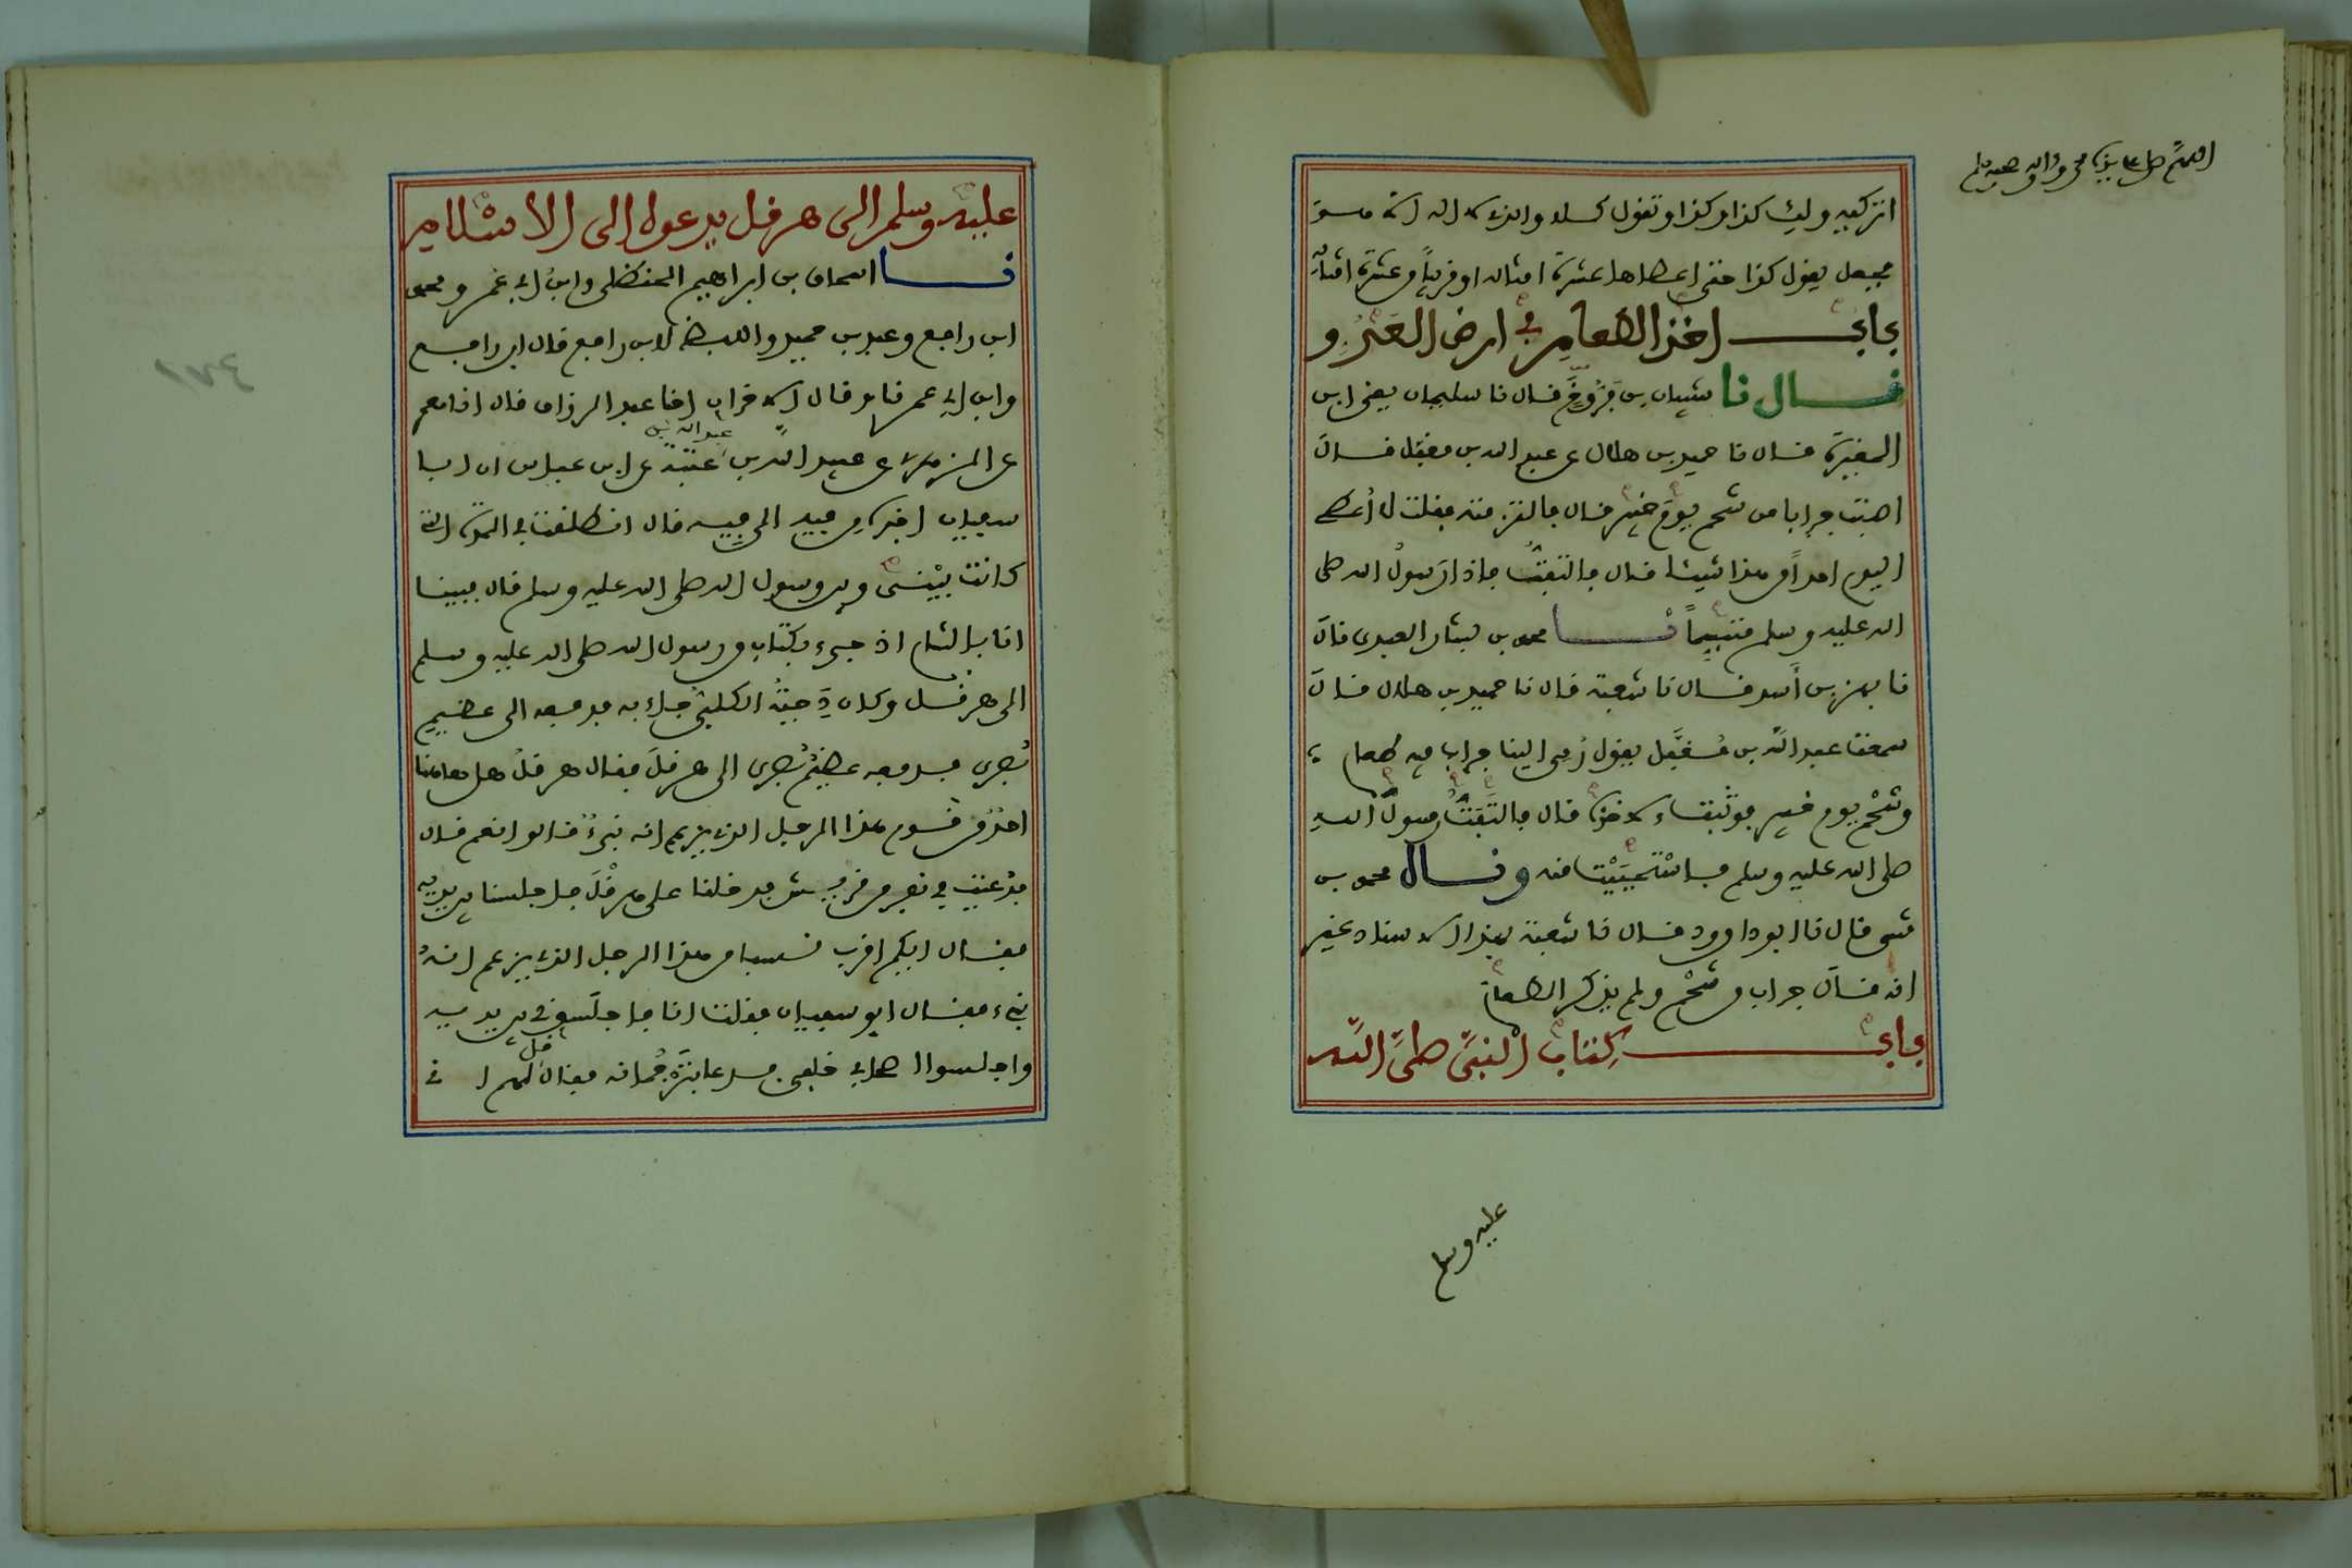 اللهم صل على سيدنا محمد وآله وصحبه وسلم
اتركيه ولك كذا وكذا وتقول كلا والذي لا اله الا هو
فجعل يقول كذا حتى اعطاها عشرة امثاله او قريبا من عشرة امثاله
باب اخذ الطعام في ارض العدو
قال نا شيبان بن فروخ قال نا سليمان يعني ابن
المغيرة قال نا حميد بن هلال عن عبد الله بن مغفل قال
اصبت جرابا من شحم يوم خيبر قال فالتزمته فقلت لا أعطي
اليوم احدا من هذا شيئا قال فالتفت فاذا رسول الله صلى
الله عليه وسلم متبسما نا محمد بن بشار العبدي قال
نا بهز بن أسد قال نا شعبة قال نا حميد بن هلال قال
سمعت عبد الله بن مغفل يقول رمي الينا جراب فيه طعام
وشحم يوم خيبر فوثبت لاخذه قال فالتفت رسول الله
صلى الله عليه وسلم فاستحييت منه وقال محمد بن
مثنى قال نا ابو داوود قال نا شعبة بهذا الاسناد غير
انه قال جراب من شحم ولم يذكر الطعام
باب كتاب النبي صلى الله
عليه وسلم
عليه وسلم الى هرقل يدعوه الى الاسلام
نا اسحاق بن ابراهيم الحنظلي وابن ابي عمر ومحمد
ابن رافع وعبد بن حميد واللفظ لابن رافع قال ابن رافع
وابن ابي عمر نا وقال الاخران انا عبد الرزاق قال انا معمر
عن الزهري عن عبيد الله بن عبد الله بن عتبة عن ابن عباس ان ابا
سفيان اخبره من فيه الى فيه قال انطلقت في المدة التي
كانت بيني وبين رسول الله صلى الله عليه وسلم قال فبينا
انا بالشام اذ جيء بكتاب من رسول الله صلى الله عليه وسلم
الى هرقل وكان دحية الكلبي جاء به فدفعه الى عظيم
بصرى فدفعه عظيم بصرى الى هرقل فقال هرقل هل هاهنا
احد من قوم هذا الرجل الذي يزعم انه نبيء قالوا نعم قال
فدعيت في نفر من قريش فدخلنا على هرقل فاجلسنا بين يديه
فقال ايكم اقرب نسبا من هذا الرجل الذي يزعم انه
نبيء فقال ابو سفيان فقلت انا فاجلسوني بين يديه
واجلسوا اصحابي خلفي فدعا بترجمانه فقال قل لهم اني